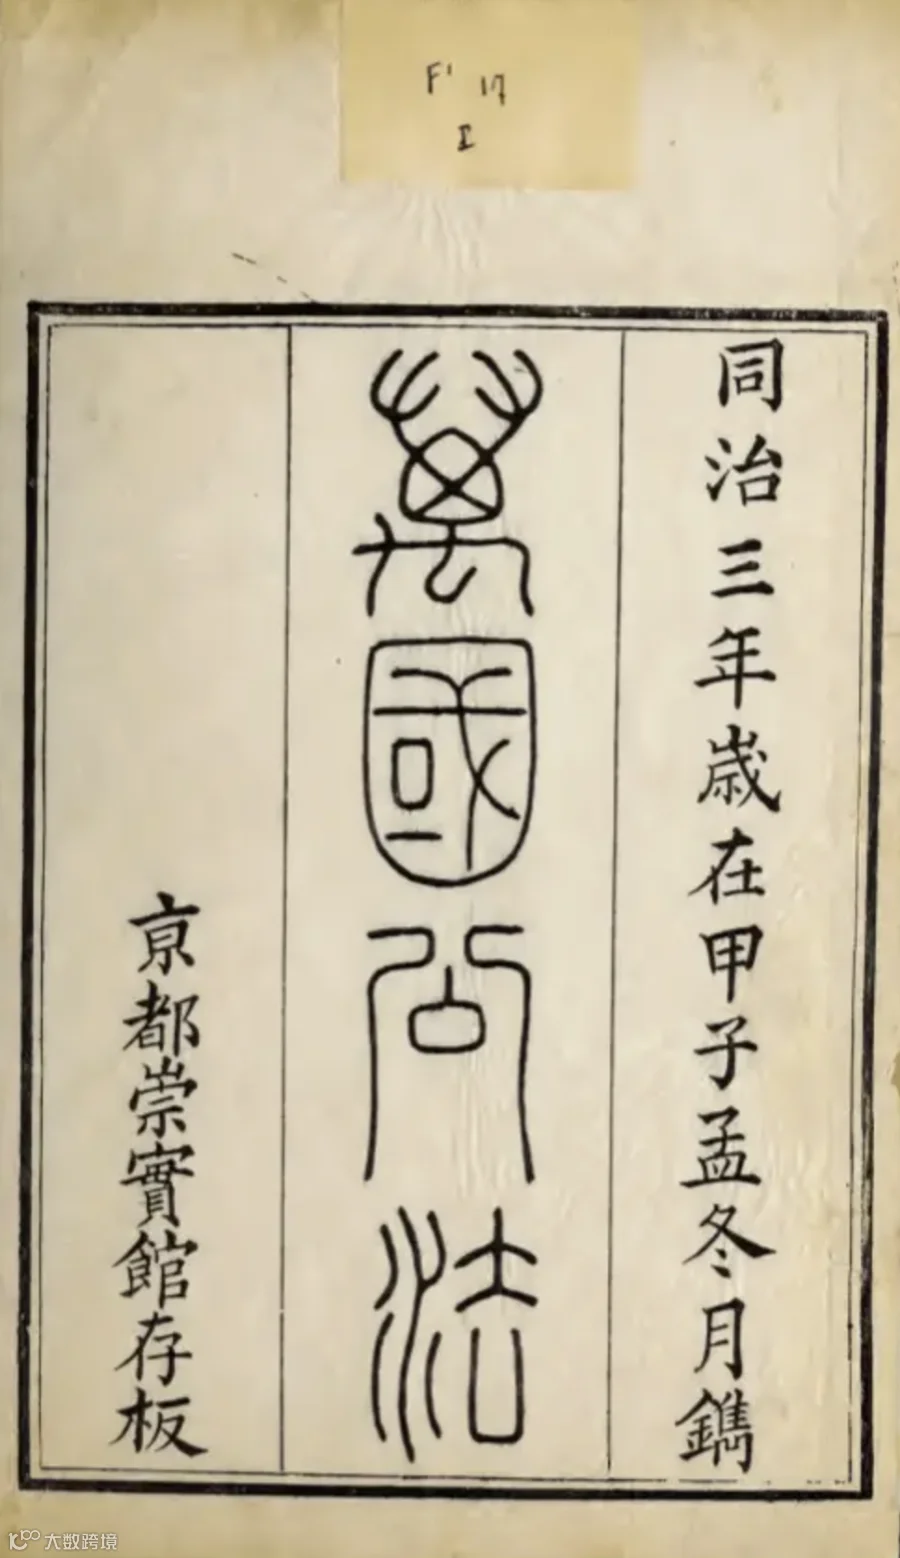 F' 17
I
同治三年歲在甲子孟冬月鐫
萬國公法
京都崇實館存板
大数跨境